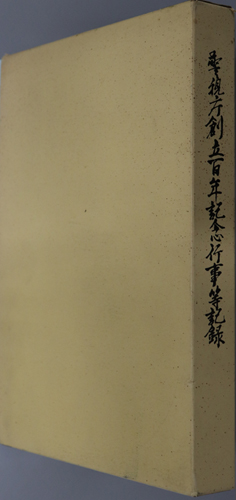 警視庁創立百年記念行事等記録